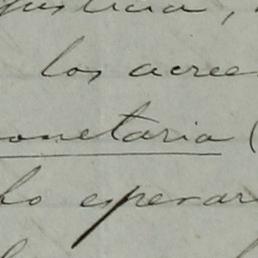 justicia,
los acree
onetaria (
esperar